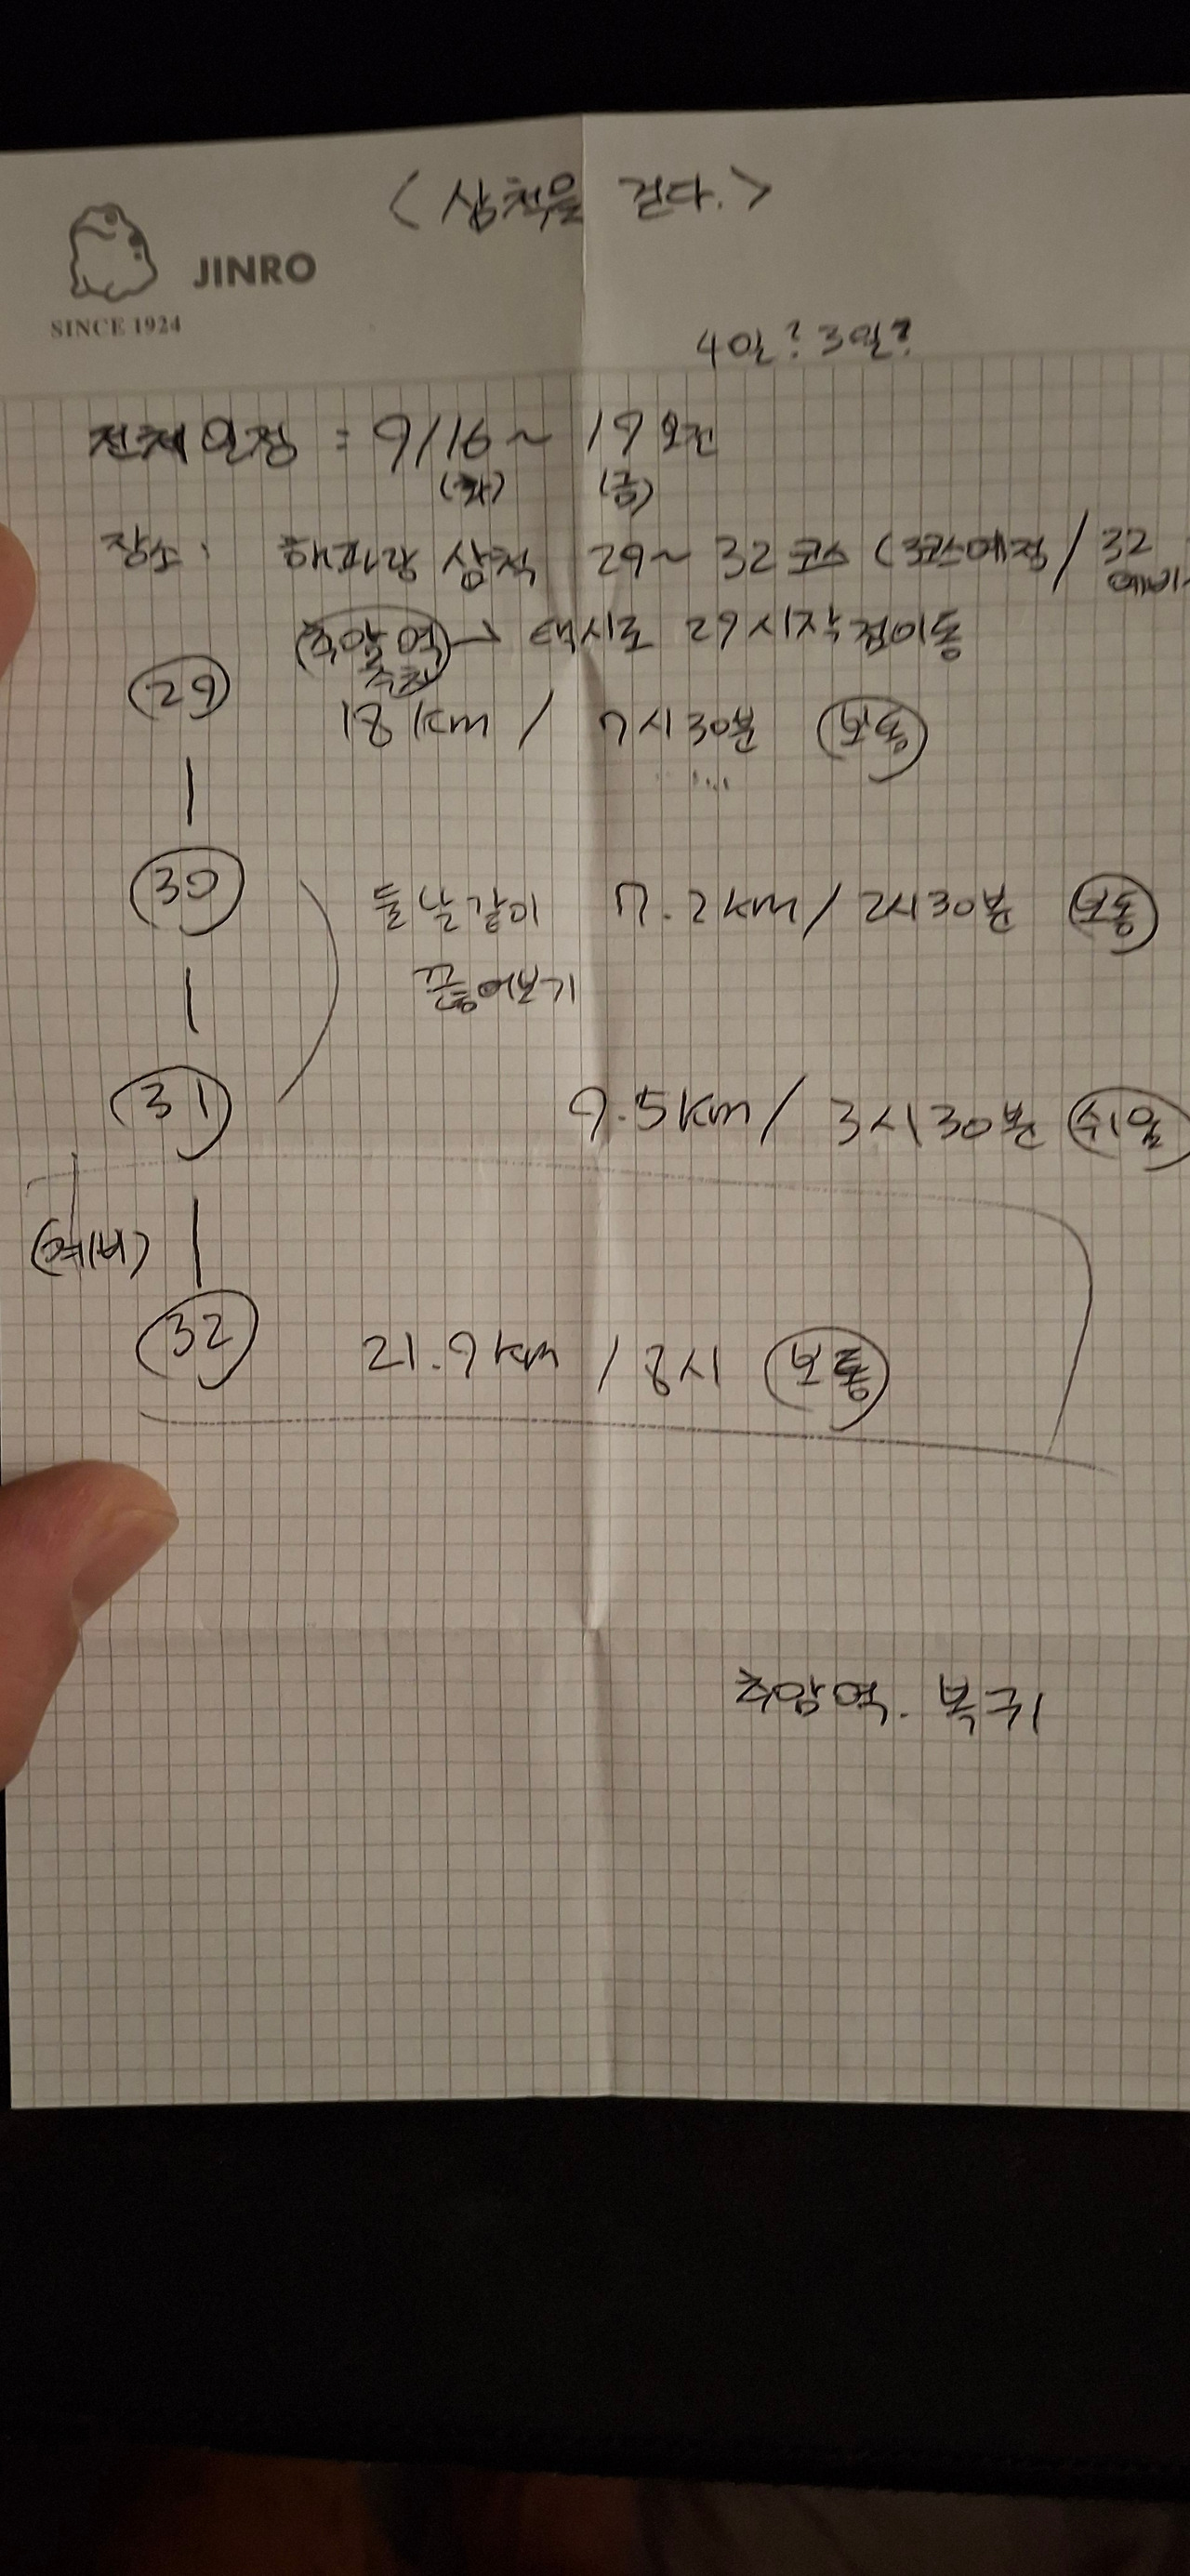 <삼척을 걷다.>
JINRO
SINCE 1924
4일? 3일?
전체일정 : 9/16 ~ 19 오전
(화) (금)
장소: 해파랑 삼척 29~32코스 (3코스예정/32
예비
(추암역) → 택시로 29시작점이동
주차
29 18km / 7시30분 보통
30 둘날같이 7.2km/2시30분 보통
끊어보기
31 9.5km/3시30분 쉬움
(예비)
32 21.9km/8시 보통
추암역. 복귀